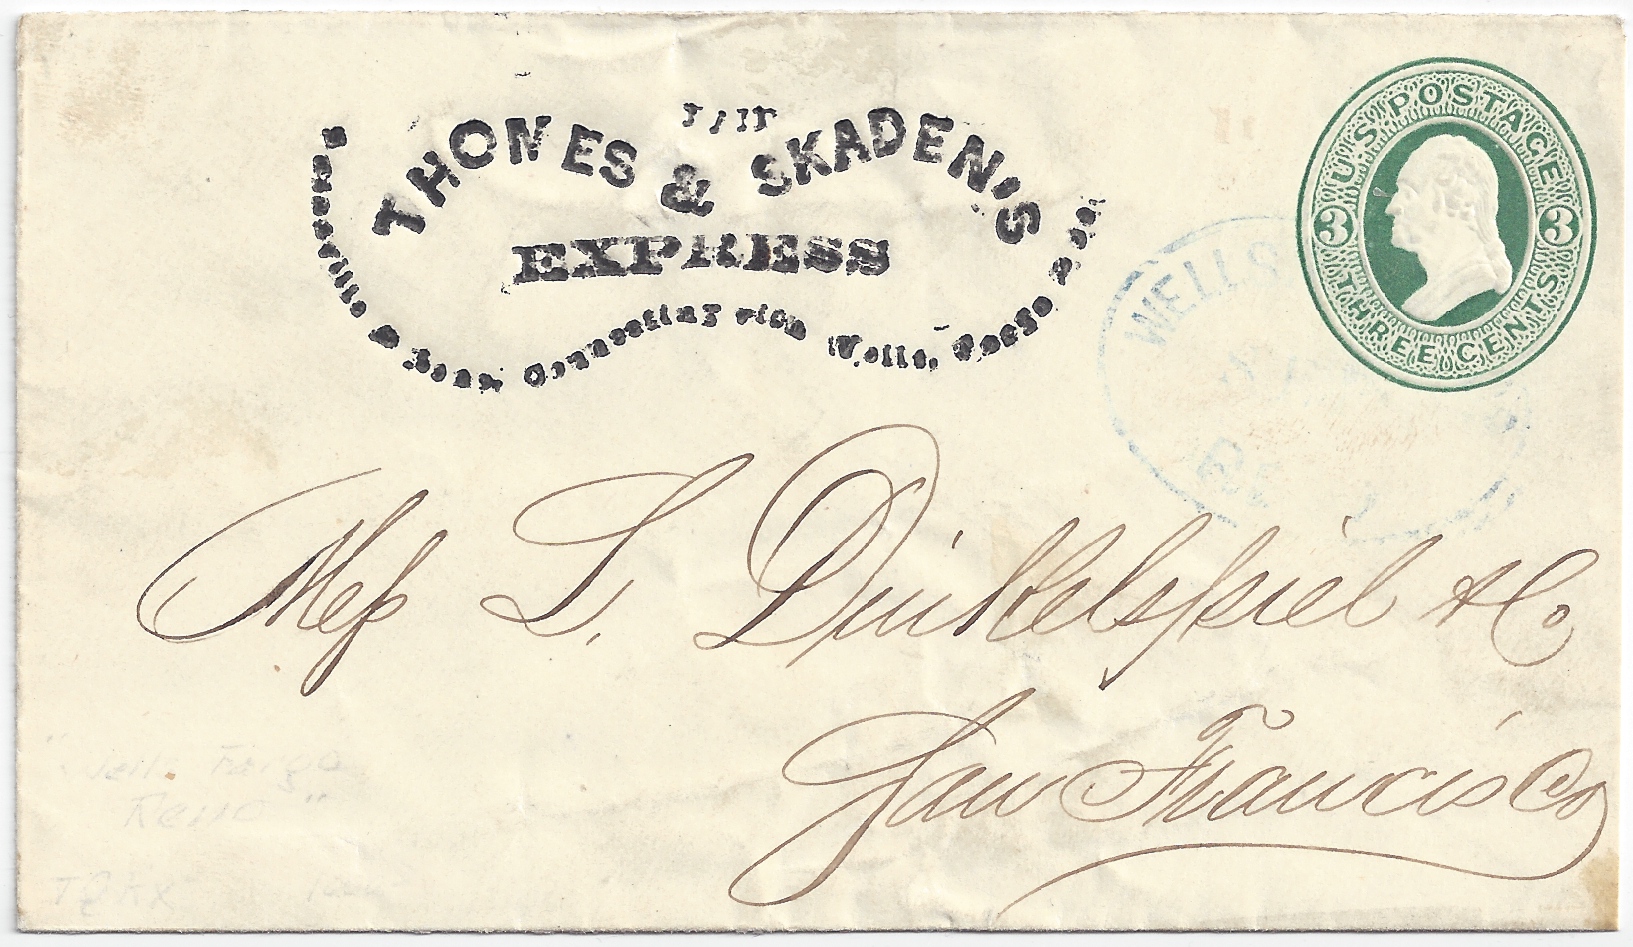 THOMES & SKADEN'S
EXPRESS
Connecting with Wells, Fargo & Co's
U.S. POSTAGE
3 3
THREE CENTS
WELLS
Mess L. Dinkelspiel & Co.
San Francisco
"Wells Fargo
Reno"